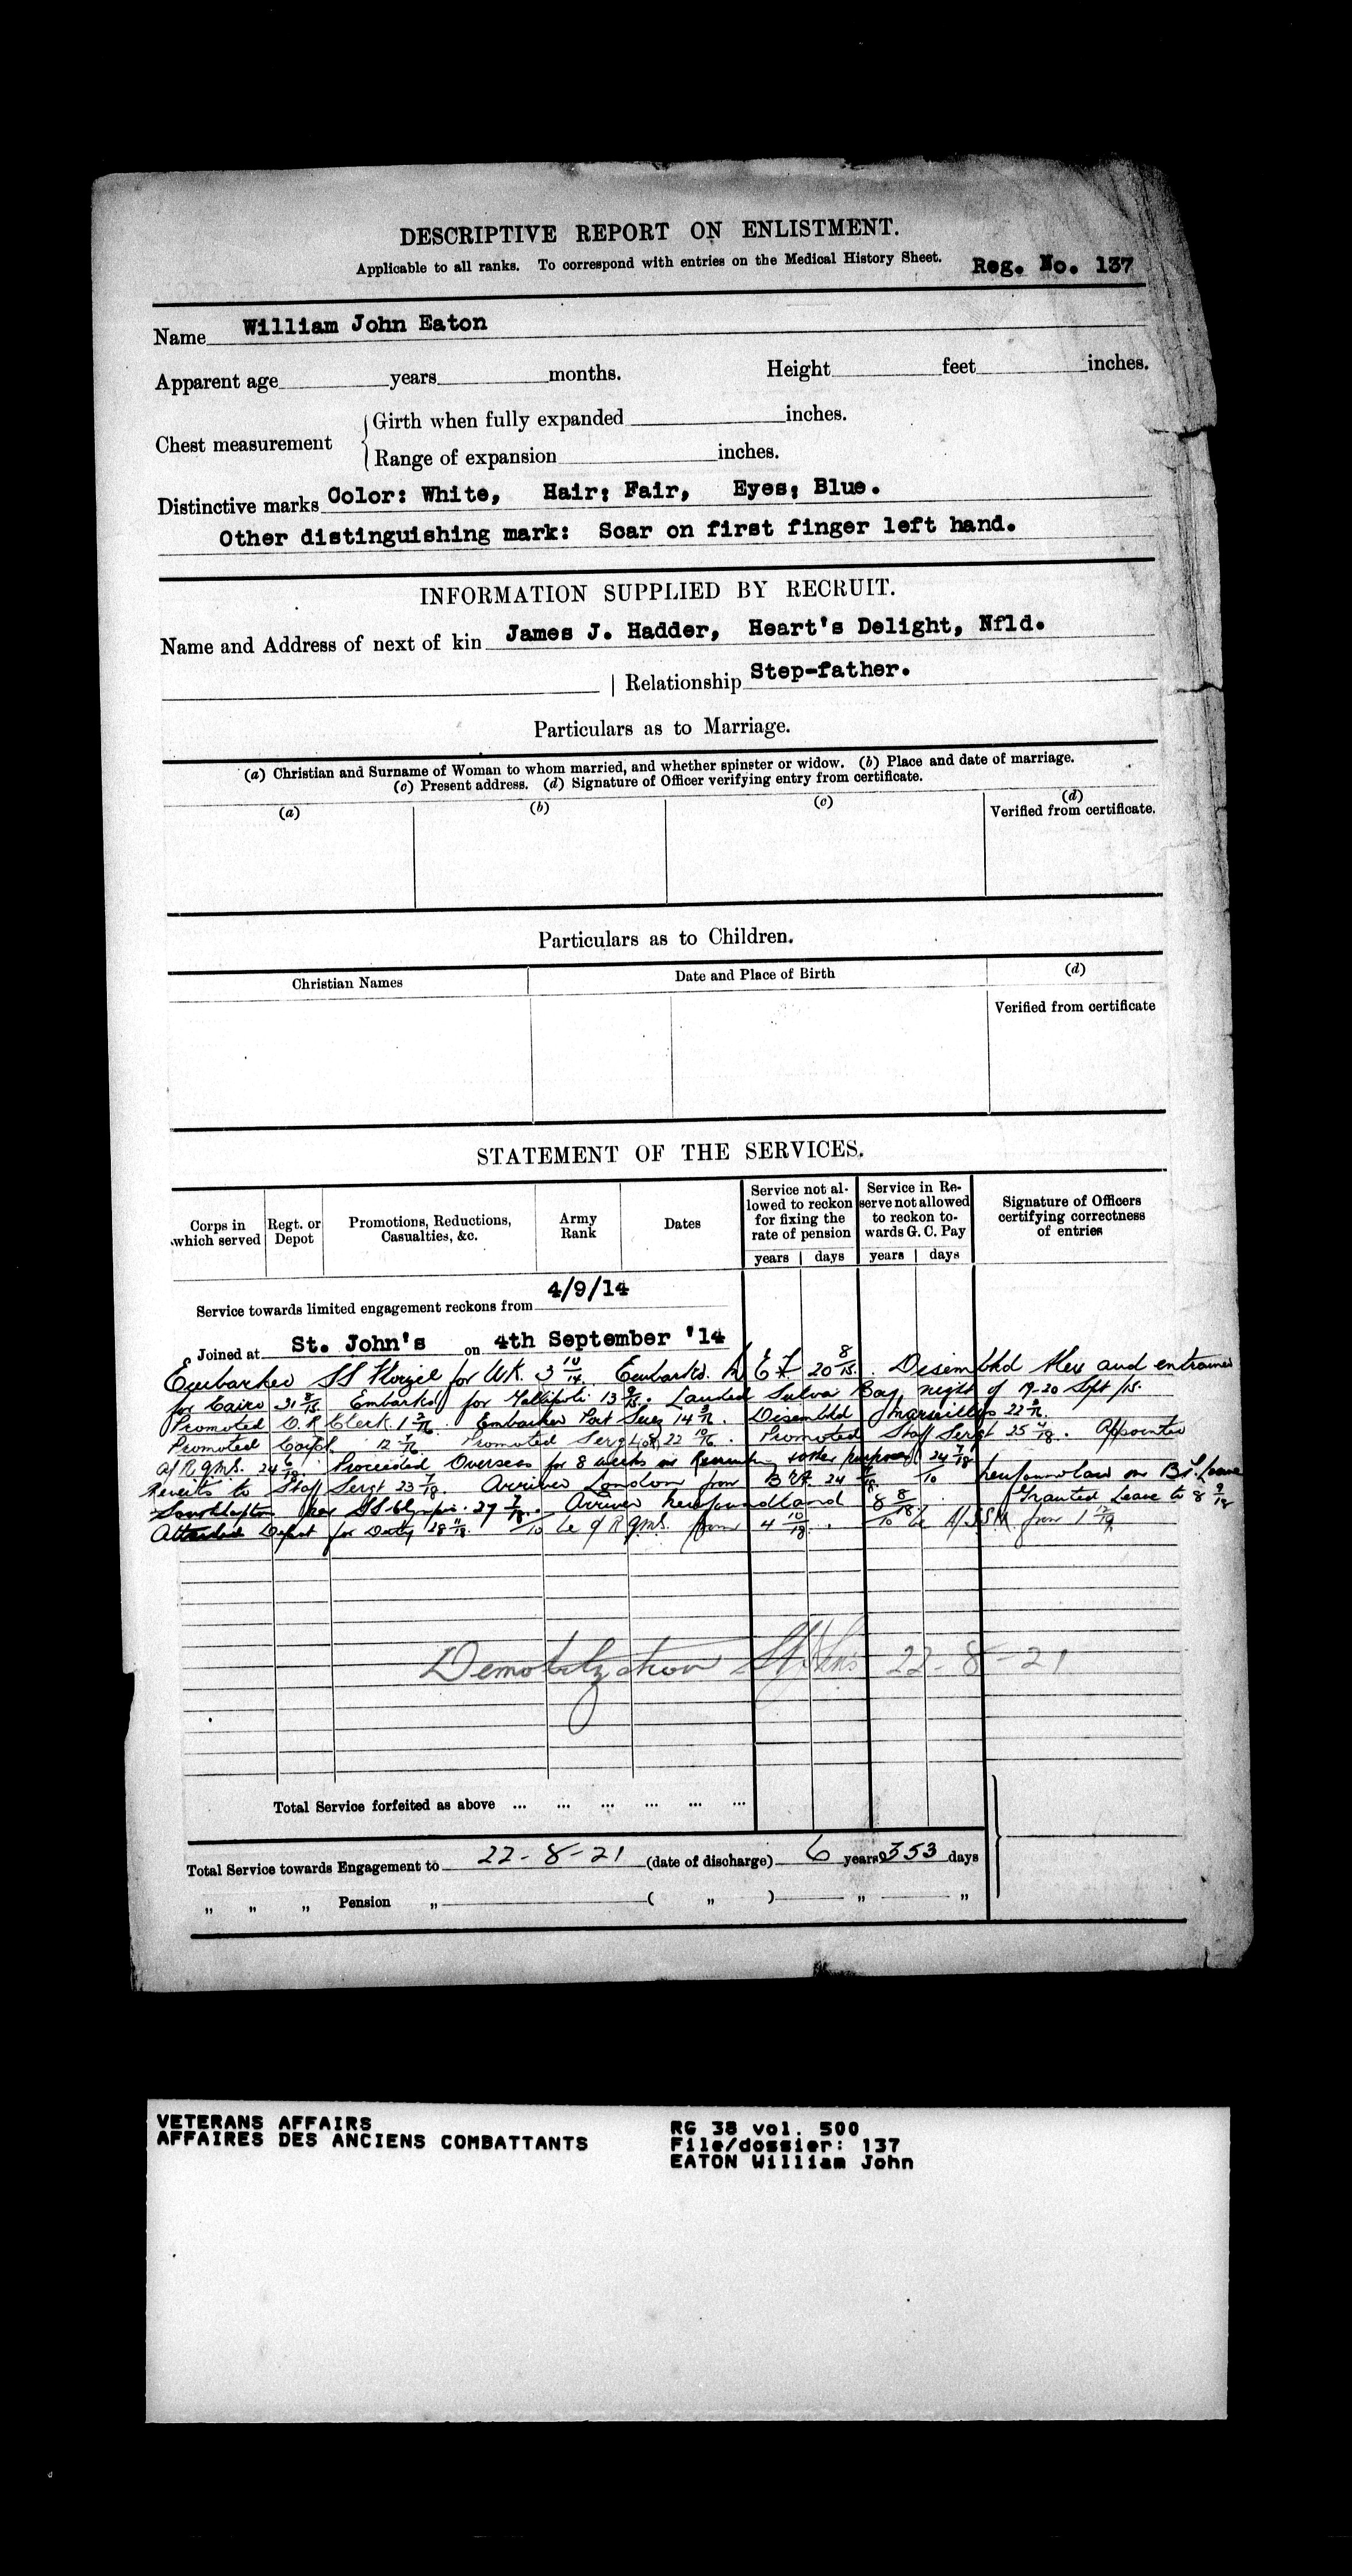 DESCRIPTIVE REPORT ON ENLISTMENT.
Applicable to all ranks. To correspond with entries on the Medical History Sheet. Reg. No. 137
Name William John Eaton
Apparent age years months. Height feet inches.
Chest measurement
Girth when fully expanded inches.
Range of expansion inches.
Distinctive marks Color: White, Hair: Fair, Eyes: Blue.
Other distinguishing mark: Scar on first finger left hand.
INFORMATION SUPPLIED BY RECRUIT.
Name and Address of next of kin James J. Hadder, Heart's Delight, Nfld.
Relationship Step-father.
Particulars as to Marriage.
(a) Christian and Surname of Woman to whom married, and whether spinster or widow. (b) Place and date of marriage.
(c) Present address. (d) Signature of Officer verifying entry from certificate.
(a) (b) (c) (d)
Verified from certificate.
Particulars as to Children.
Christian Names Date and Place of Birth (d)
Verified from certificate
STATEMENT OF THE SERVICES.
Corps in which served Regt. or Depot Promotions, Reductions, Casualties, &c. Army Rank Dates Service not allowed to reckon for fixing the rate of pension Service in Reserve not allowed to reckon towards G. C. Pay Signature of Officers certifying correctness of entries
years days years days
Service towards limited engagement reckons from 4/9/14
Joined at St. John's on 4th September '14
Embarked SS Florizel for UK. 3 10/14 Embarked 20 8/15. Disembkd Alex and entrained
for Cairo 31 8/15 Embarked for Gallipoli 13 9/15. Landed Suvla Bay, night of 19-20 Sept /15.
Promoted O.R. Clerk 1 Embarked Port Suez 14 3/16. Disembkd Marseilles 22 3/16.
Promoted Corpl 12 Promoted Sergt 22 10/16. Promoted Staff Sergt 25 4/18. Appointed
a/RQMS. 24 6/18 Proceeded Overseas for 8 weeks on other purposes 24 7/18
Reverts to Staff Sergt 23 7/18. Arrived London from 24 Newfoundland on Leave
Southampton per SS Olympic. 27 7/18. Arrived Newfoundland 8 8/18. Granted Leave to 8 9/18
Attached Depot for Duty 28 11/18. to be a/RQMS. from 4 10/18. to be from 1
Demobilization St Johns 22-8-21
Total Service forfeited as above ... ... ... ... ... ...
Total Service towards Engagement to 22-8-21 (date of discharge) 6 years 353 days
" " " Pension " ( " ) " "
VETERANS AFFAIRS
AFFAIRES DES ANCIENS COMBATTANTS
RG 38 vol. 500
File/dossier: 137
EATON William John